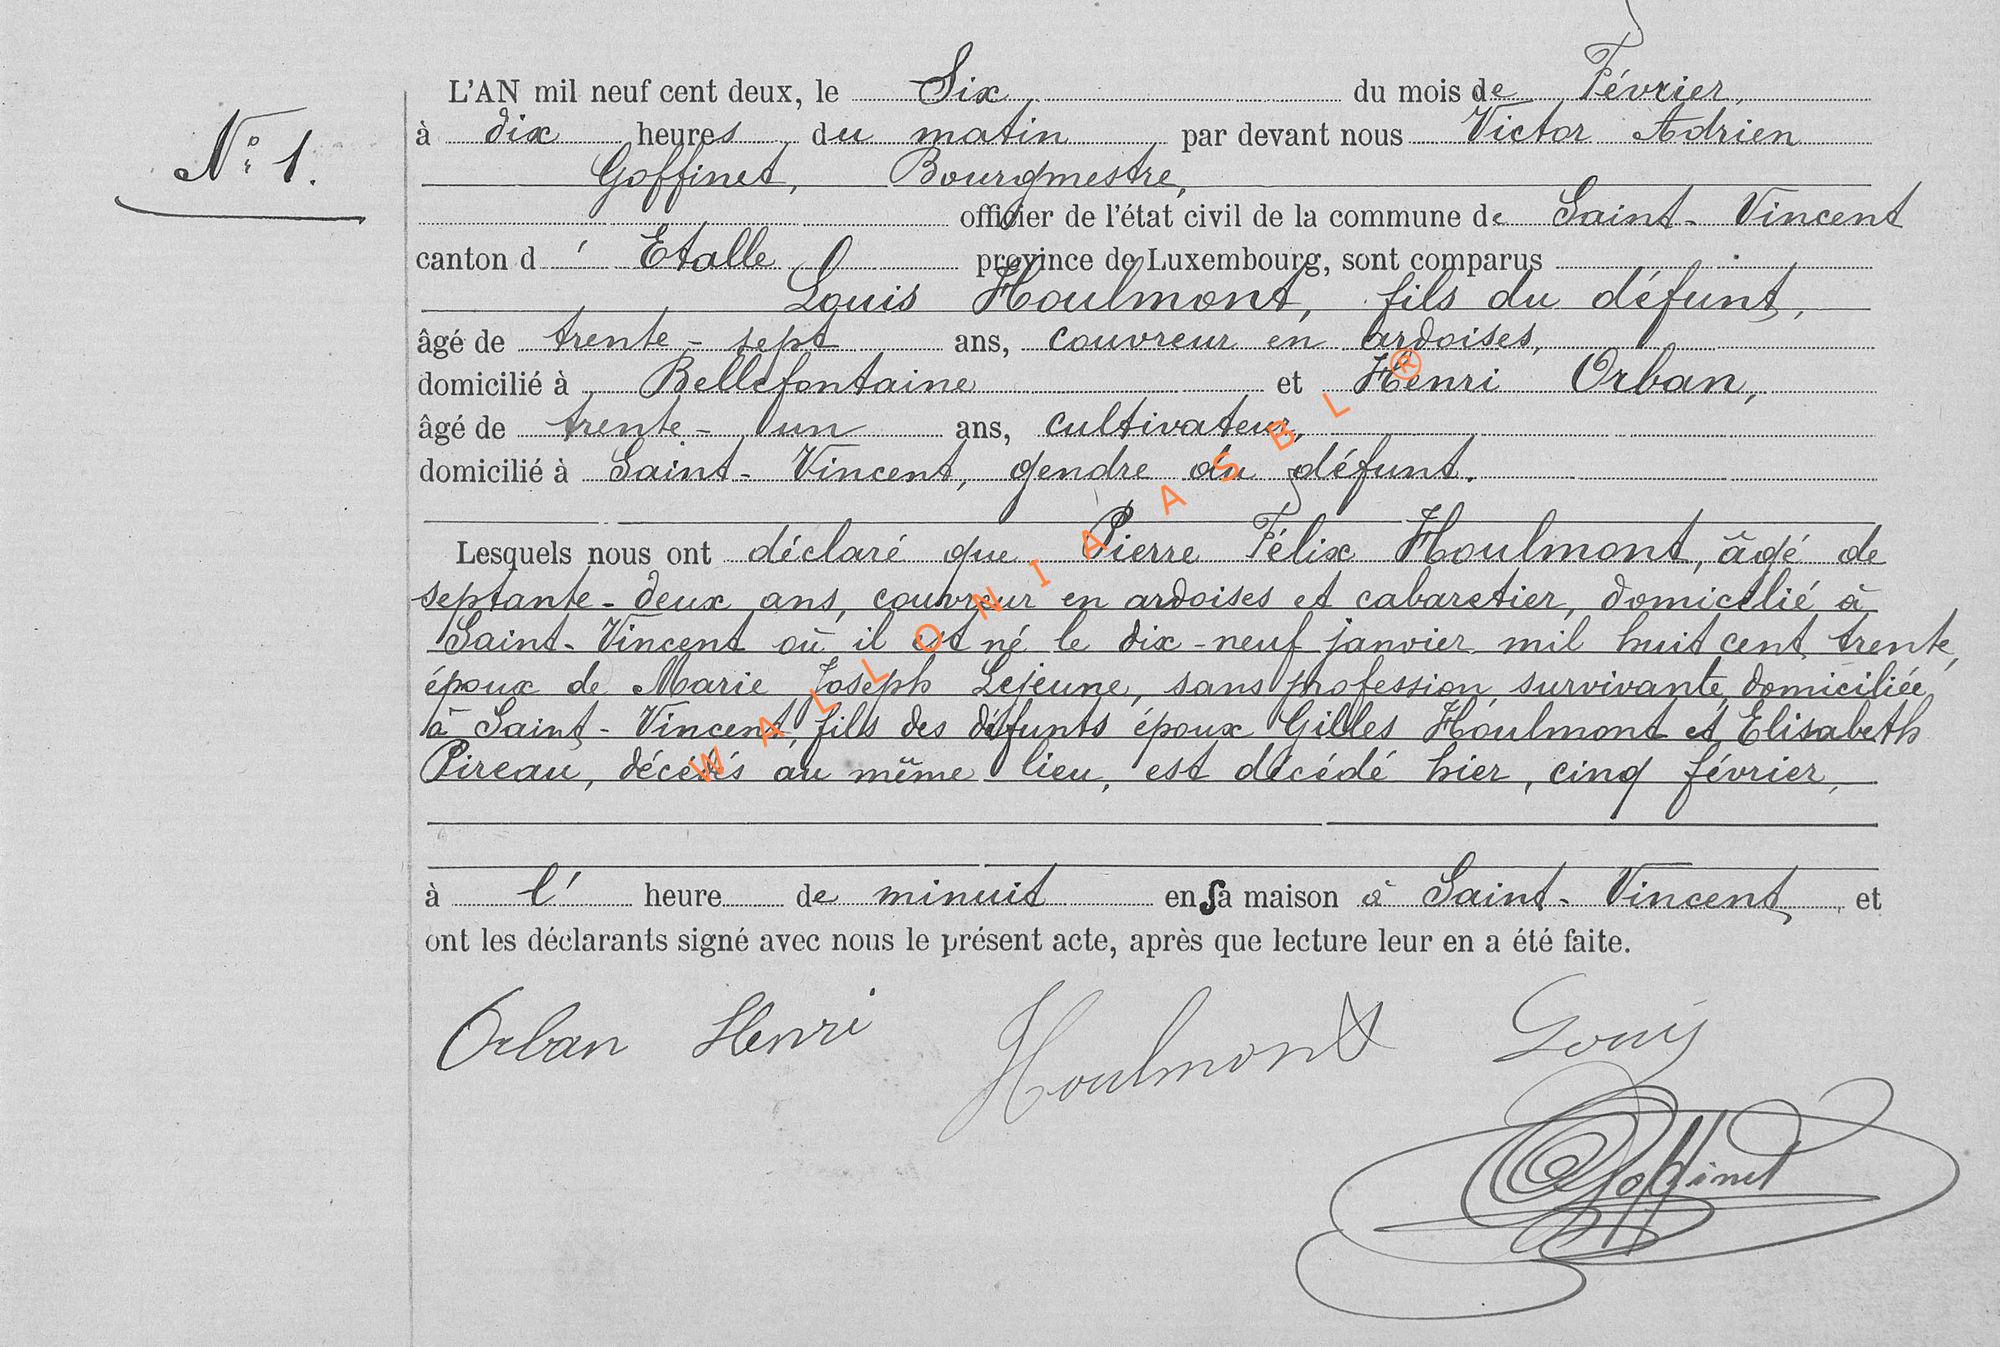 N° 1.
L'AN mil neuf cent deux, le Six du mois de Février,
à dix heures du matin par devant nous Victor Adrien
Goffinet, Bourgmestre,
officier de l'état civil de la commune de Saint-Vincent
canton d'Etalle province de Luxembourg, sont comparus
Louis Houlmont, fils du défunt,
âgé de trente-sept ans, couvreur en ardoises,
domicilié à Bellefontaine et Henri Orban,
âgé de trente-un ans, cultivateur,
domicilié à Saint-Vincent, gendre du défunt.
Lesquels nous ont déclaré que Pierre Félix Houlmont, âgé de
septante-deux ans, couvreur en ardoises et cabaretier, domicilié à
Saint-Vincent où il est né le dix-neuf janvier mil huit cent trente,
époux de Marie Joseph Lejeune, sans profession, survivante, domiciliée
à Saint-Vincent, fils des défunts époux Gilles Houlmont et Elisabeth
Pireau, décédés au même lieu, est décédé hier, cinq février,
à l'heure de minuit en sa maison à Saint-Vincent, et
ont les déclarants signé avec nous le présent acte, après que lecture leur en a été faite.
Orban Henri Houlmont Louis
Goffinet
WALLONIA ASBL ®